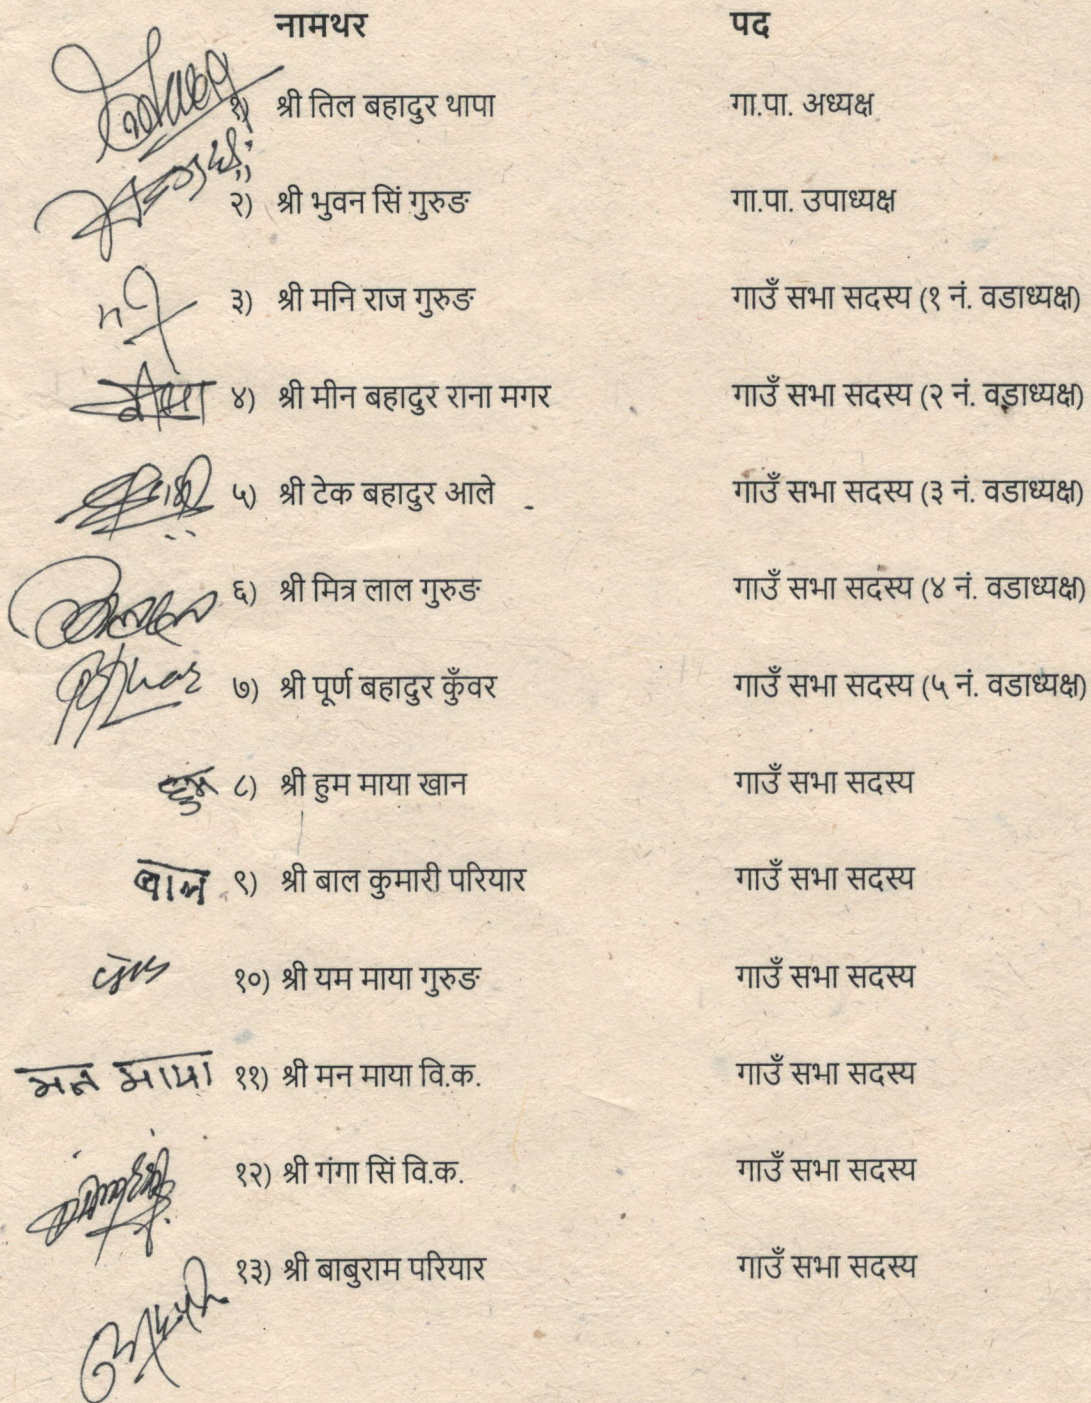 नामथर पद
१) श्री तिल बहादुर थापा गा.पा. अध्यक्ष
२) श्री भुवन सिं गुरुङ गा.पा. उपाध्यक्ष
३) श्री मनि राज गुरुङ गाउँ सभा सदस्य (१ नं. वडाध्यक्ष)
४) श्री मीन बहादुर राना मगर गाउँ सभा सदस्य (२ नं. वडाध्यक्ष)
५) श्री टेक बहादुर आले गाउँ सभा सदस्य (३ नं. वडाध्यक्ष)
६) श्री मित्र लाल गुरुङ गाउँ सभा सदस्य (४ नं. वडाध्यक्ष)
७) श्री पूर्ण बहादुर कुँवर गाउँ सभा सदस्य (५ नं. वडाध्यक्ष)
८) श्री हुम माया खान गाउँ सभा सदस्य
बाल ९) श्री बाल कुमारी परियार गाउँ सभा सदस्य
१०) श्री यम माया गुरुङ गाउँ सभा सदस्य
मन माया ११) श्री मन माया वि.क. गाउँ सभा सदस्य
१२) श्री गंगा सिं वि.क. गाउँ सभा सदस्य
१३) श्री बाबुराम परियार गाउँ सभा सदस्य